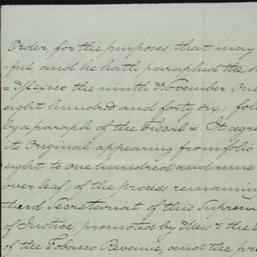 Order for the purposes that may
ful, and he hath paraphed the
Mexico the ninth November One
eight hundred and forty six. fol
by a paraph of the Fiscal & It agre
it Original appearing from folio
eight to one hundred and nine
over leaf of the process remainin
third Secretariat of this Suprem
of Justice promoted by Mess & the
of the Tobacco Revenue, and the pre